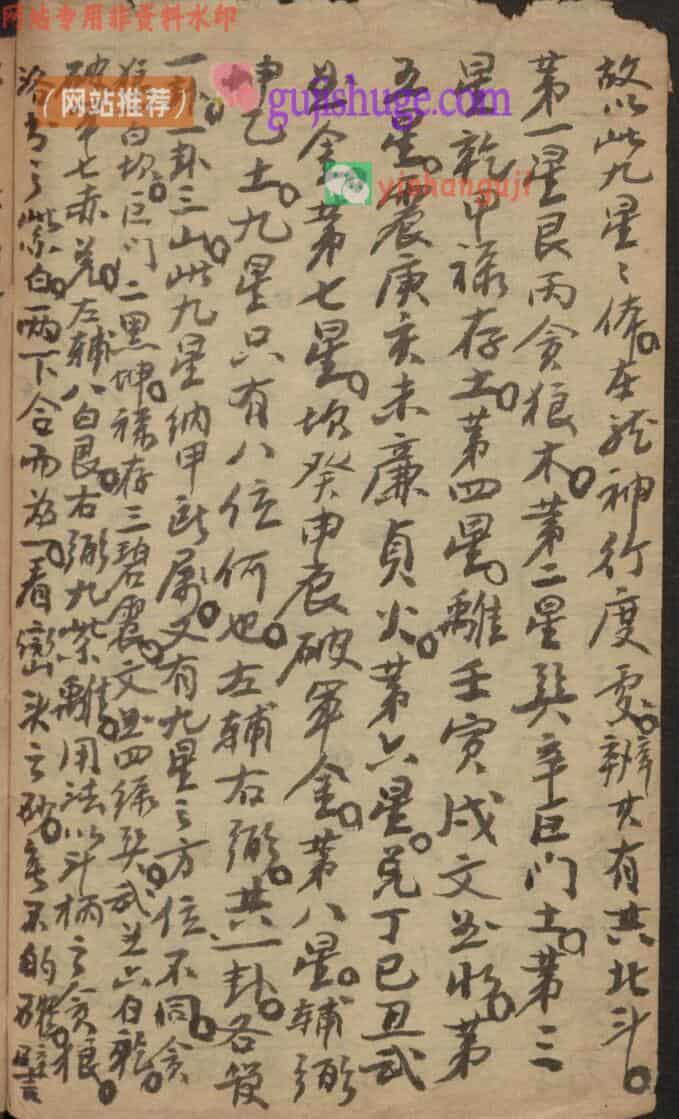 网站专用非资料水印
(网站推荐)
gujishuge.com
yishanguji
故以此九星之體在龍神行度处辨其有共北斗
第一星艮丙贪狼木第二星巽辛巨門土第三
星乾甲禄存土第四星離壬寅戌文曲水第
五星震庚亥未廉貞火第六星兑丁巳丑武
曲金第七星坎癸申辰破軍金第八星輔弼
坤乙土九星只有八位何也左輔右弼共一卦各管
一卦三山此九星納甲所属又有九星之方位不同贪
狼一白坎巨門二黑坤禄存三碧震文曲四绿巽武曲六白乾
破軍七赤兑左輔八白艮右弼九紫離用法以斗柄之贪狼
之紫白兩下合而为一看巒头之砂的確